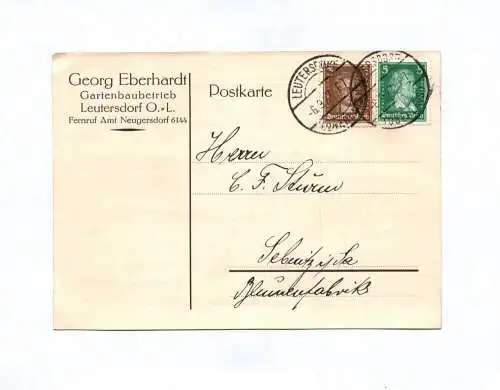 Georg Eberhardt
Gartenbaubetrieb
Leutersdorf O.-L.
Fernruf Amt Neugersdorf 6144
Postkarte
LEUTERSDORF
5
Deutsches Reich
Herrn
C. F. Sturm
Sebnitz i/Sa
Blumenfabrik